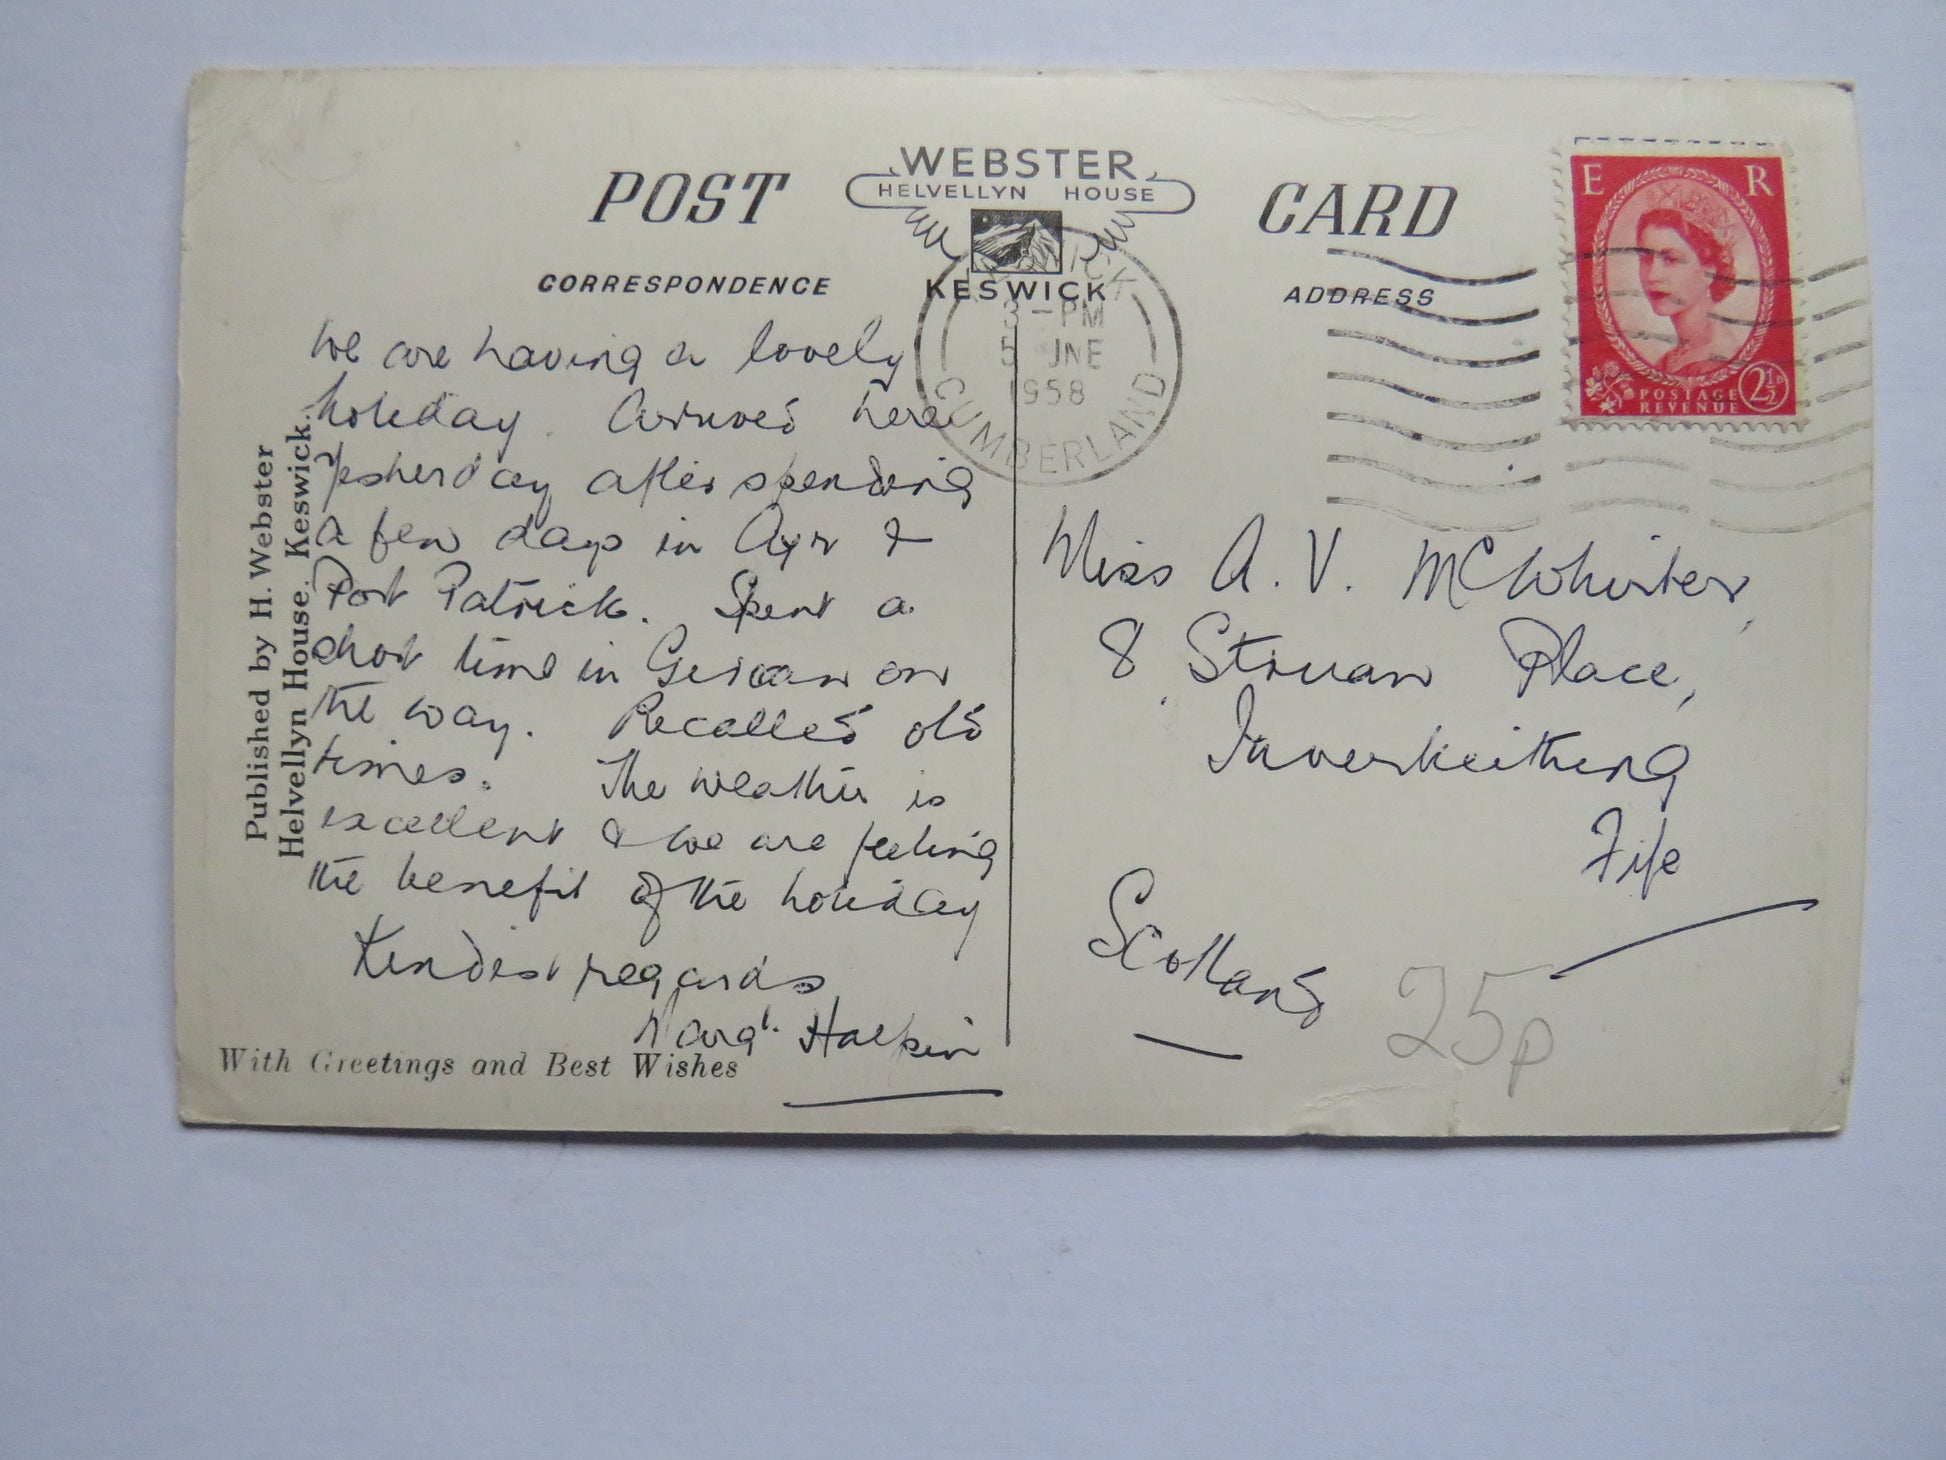 POST CARD
WEBSTER
HELVELLYN HOUSE
KESWICK
CORRESPONDENCE
ADDRESS
KESWICK
3 - PM
5 JNE
1958
CUMBERLAND
E R
POSTAGE
REVENUE
2½D
We are having a lovely
holiday. Arrived here
Yesterday after spending
a few days in Ayr &
Port Patrick. Spent a
short time in Girvan on
the way. Recalled old
times. The weather is
excellent & we are feeling
the benefit of the holiday
Kindest regards
Margt. Halpin
Miss A. V. McWhirter,
8 Struan Place,
Inverkeithing
Fife
Scotland
25p
Published by H. Webster
Helvellyn House. Keswick.
With Greetings and Best Wishes